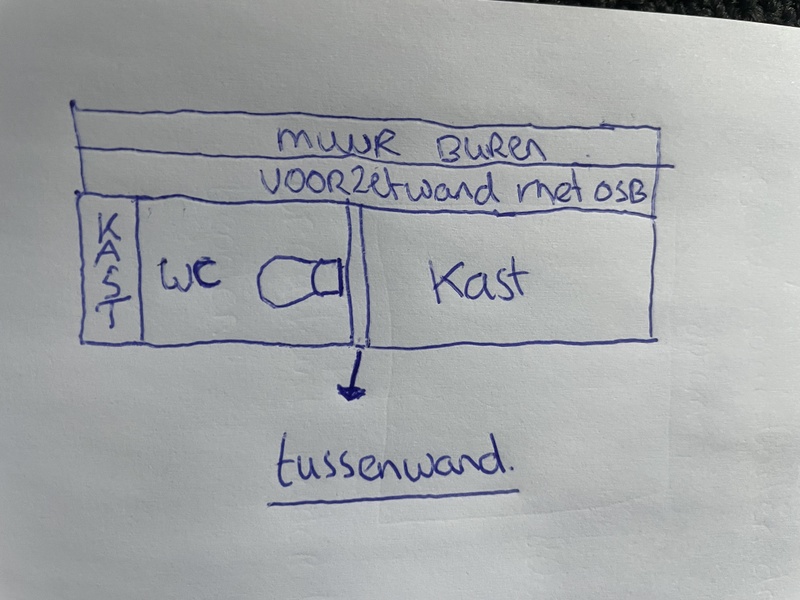 MUUR BUREN
VOORZETWAND met OSB
KAST
WC
Kast
tussenwand.